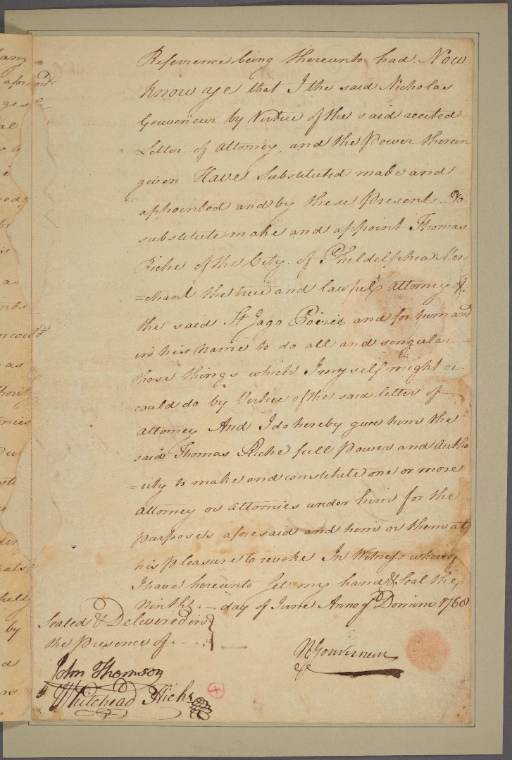 Reference being thereunto had Now
Know aye that I the said Nicholas
Gouverneur by Virtue of the said recited
Letter of Attorney, and the Power therein
given Have Substituted made and
appointed and by these Presents Do
substitute make and appoint Thomas
Riche of the City of Pheldelphea Mer-
=chant the true and lawfull attorney of
the said St Jago and for him and
in his name to do all and singular
those things which I myself might or
could do by Virtue of the said letter of
attorney And I do hereby give him the
said Thomas Riche full Power and Autho
=rity to make and constitute one or more
Attorney or Attornies under him for the
purposes aforesaid and him or them at
his pleasure to revoke In Witness whereof
I have hereunto Set my hand & Seal the
Ninth day of June Anno Domini 1760
Sealed & Delivered in
the Presence of
N Gouverneur
John Thomson
Whitehead Hicks